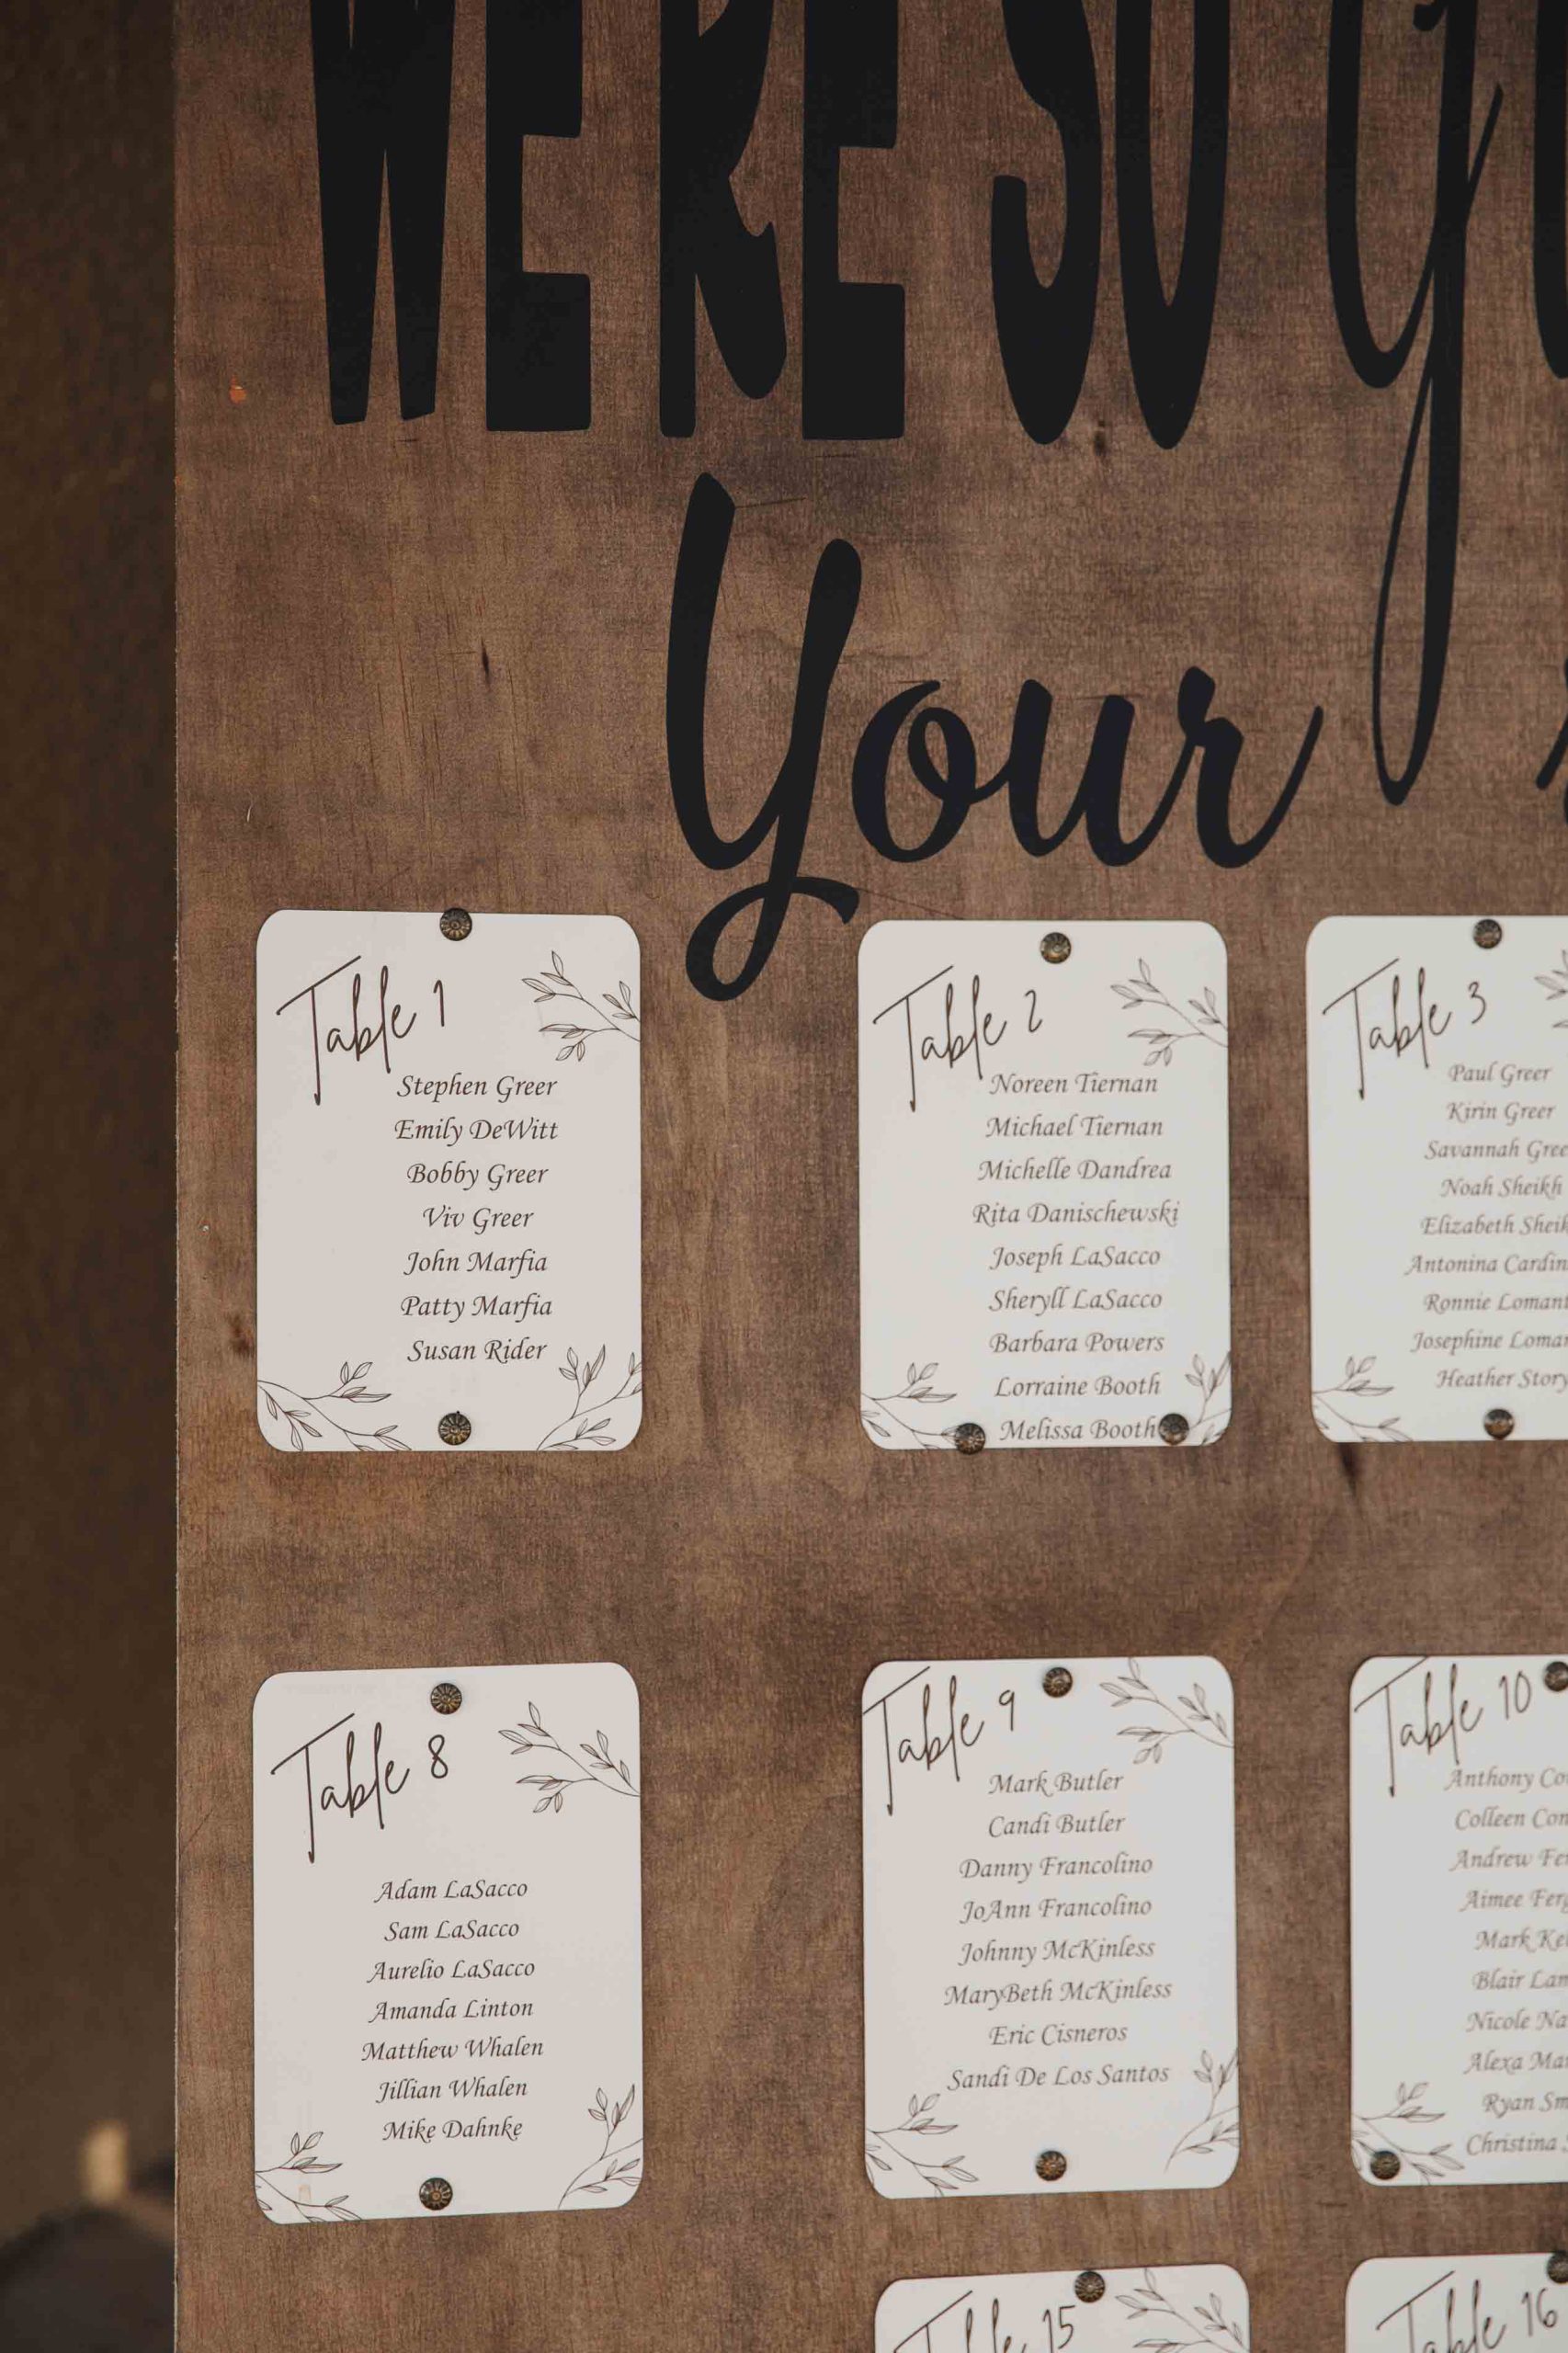 WE'RE SO
Your
Table 1
Stephen Greer
Emily DeWitt
Bobby Greer
Viv Greer
John Marfia
Patty Marfia
Susan Rider
Table 2
Noreen Tiernan
Michael Tiernan
Michelle Dandrea
Rita Danischewski
Joseph LaSacco
Sheryll LaSacco
Barbara Powers
Lorraine Booth
Melissa Booth
Table 3
Paul Greer
Kirin Greer
Savannah
Noah Sheikh
Elizabeth
Antonina
Ronnie
Josephine
Heather Story
Table 8
Adam LaSacco
Sam LaSacco
Aurelio LaSacco
Amanda Linton
Matthew Whalen
Jillian Whalen
Mike Dahnke
Table 9
Mark Butler
Candi Butler
Danny Francolino
JoAnn Francolino
Johnny McKinless
MaryBeth McKinless
Eric Cisneros
Sandi De Los Santos
Table 10
Anthony
Colleen
Andrew
Aimee
Mark
Blair
Nicole
Alexa
Ryan
Christina
Table 15
Table 16